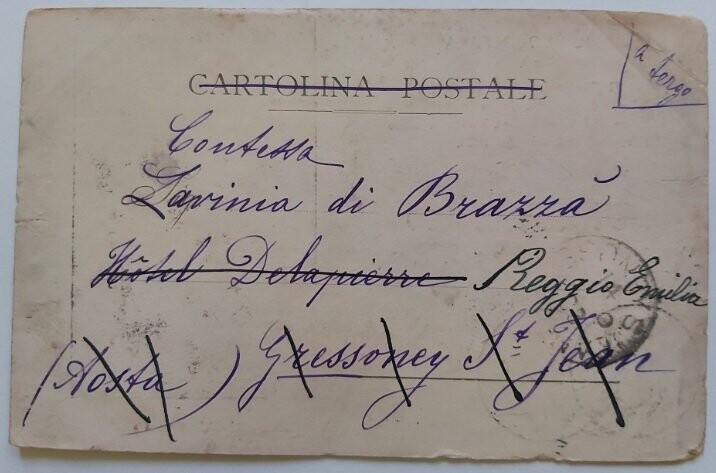 a tergo
CARTOLINA POSTALE
Contessa
Lavinia di Brazzà
Hôtel Delapierre Reggio Emilia
(Aosta) Gressoney St Jean